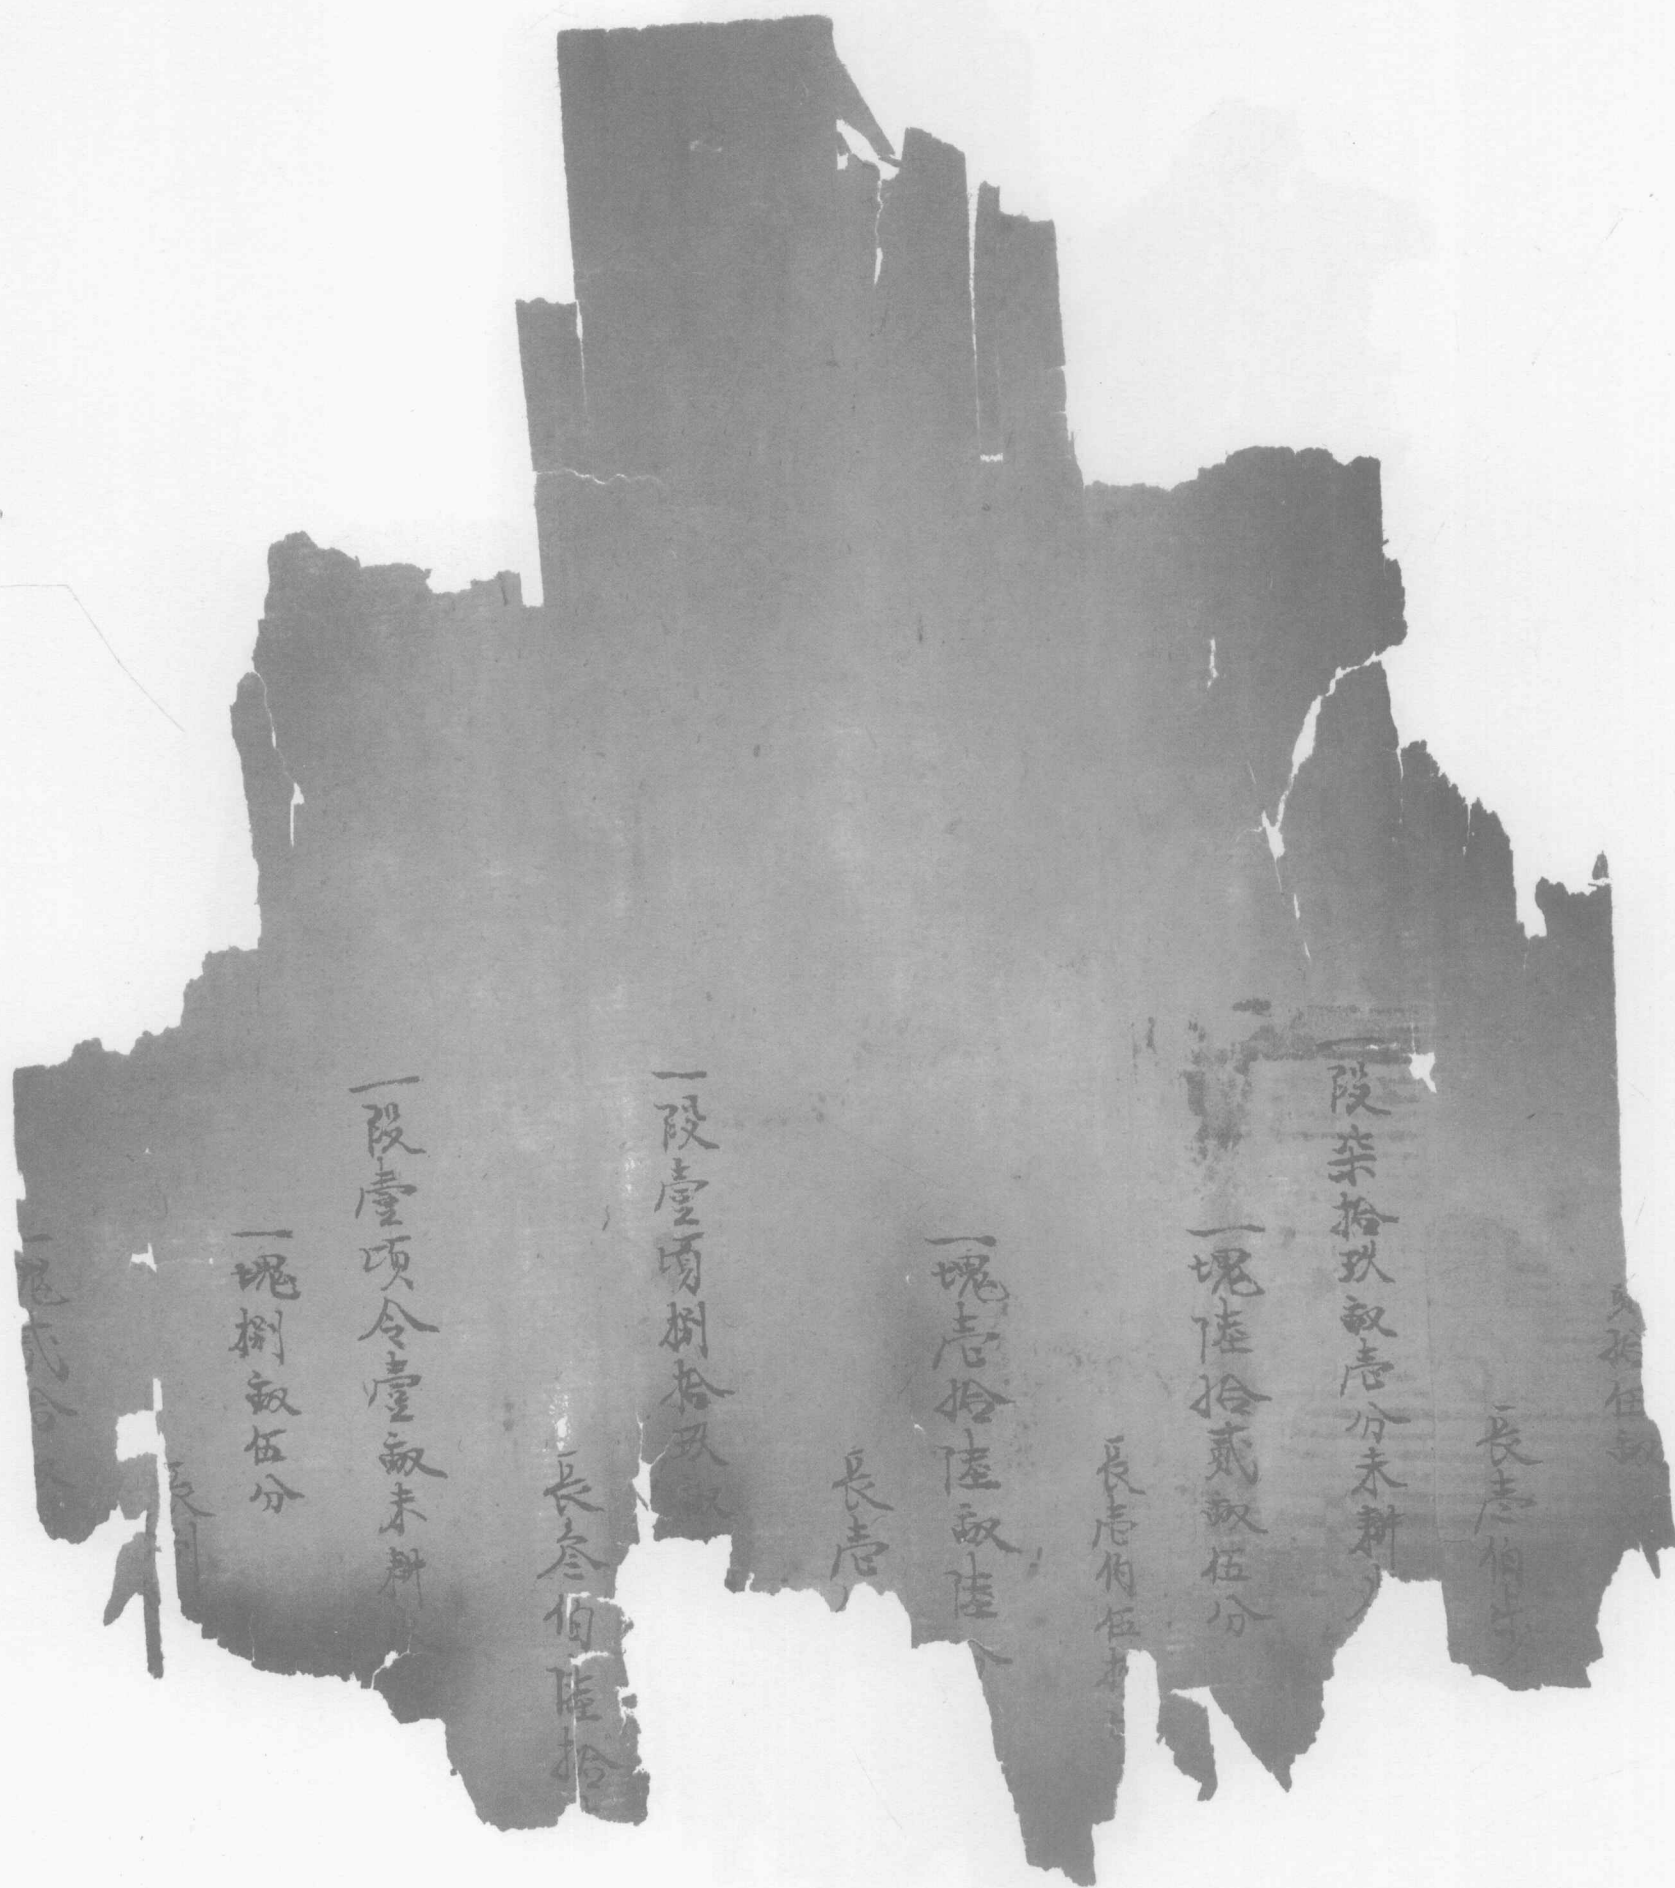 玖拾伍畝
長壱伯步
一段柒拾玖畝壱分未耕
一塊陸拾貳畝伍分
長壱伯伍拾
一塊壱拾陸畝陸分
長壱
一段壹頃捌拾玖畝
長叁伯陸拾
一段壹頃令壹畝未耕
一塊捌畝伍分
長
一塊貳拾